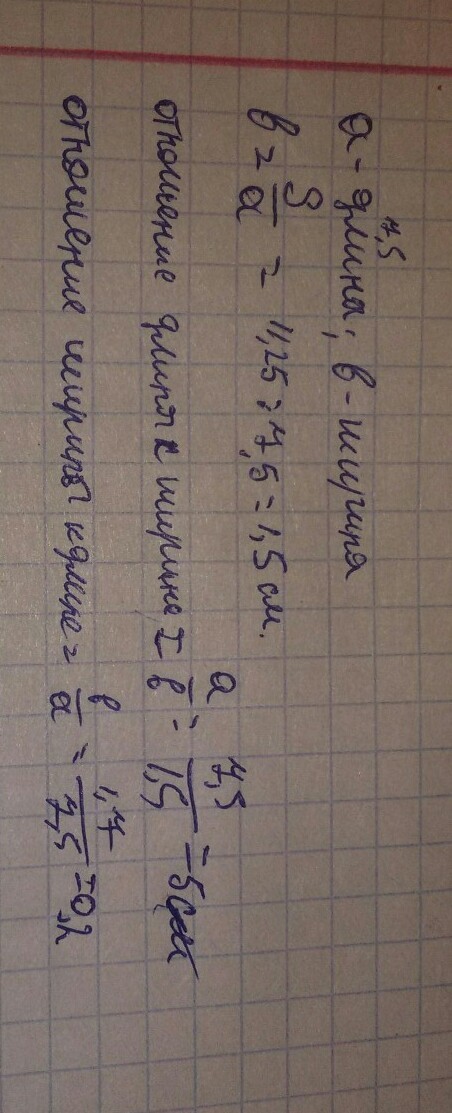 7,5
а - длина, в - ширина
в = S/а = 11,25 : 7,5 = 1,5 см.
отношение длины к ширине = а/в = 7,5/1,5 = 5 см
отношение ширины к длине = в/а = 1,7/7,5 = 0,2